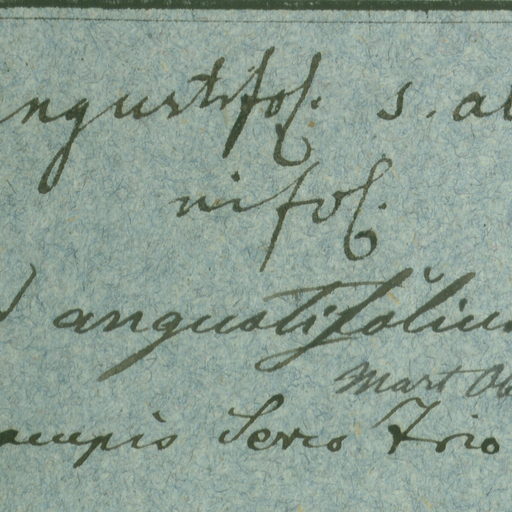 ngustifol. s. al
nifol.
angustifolium
Mart Ob
campis Serro Frio